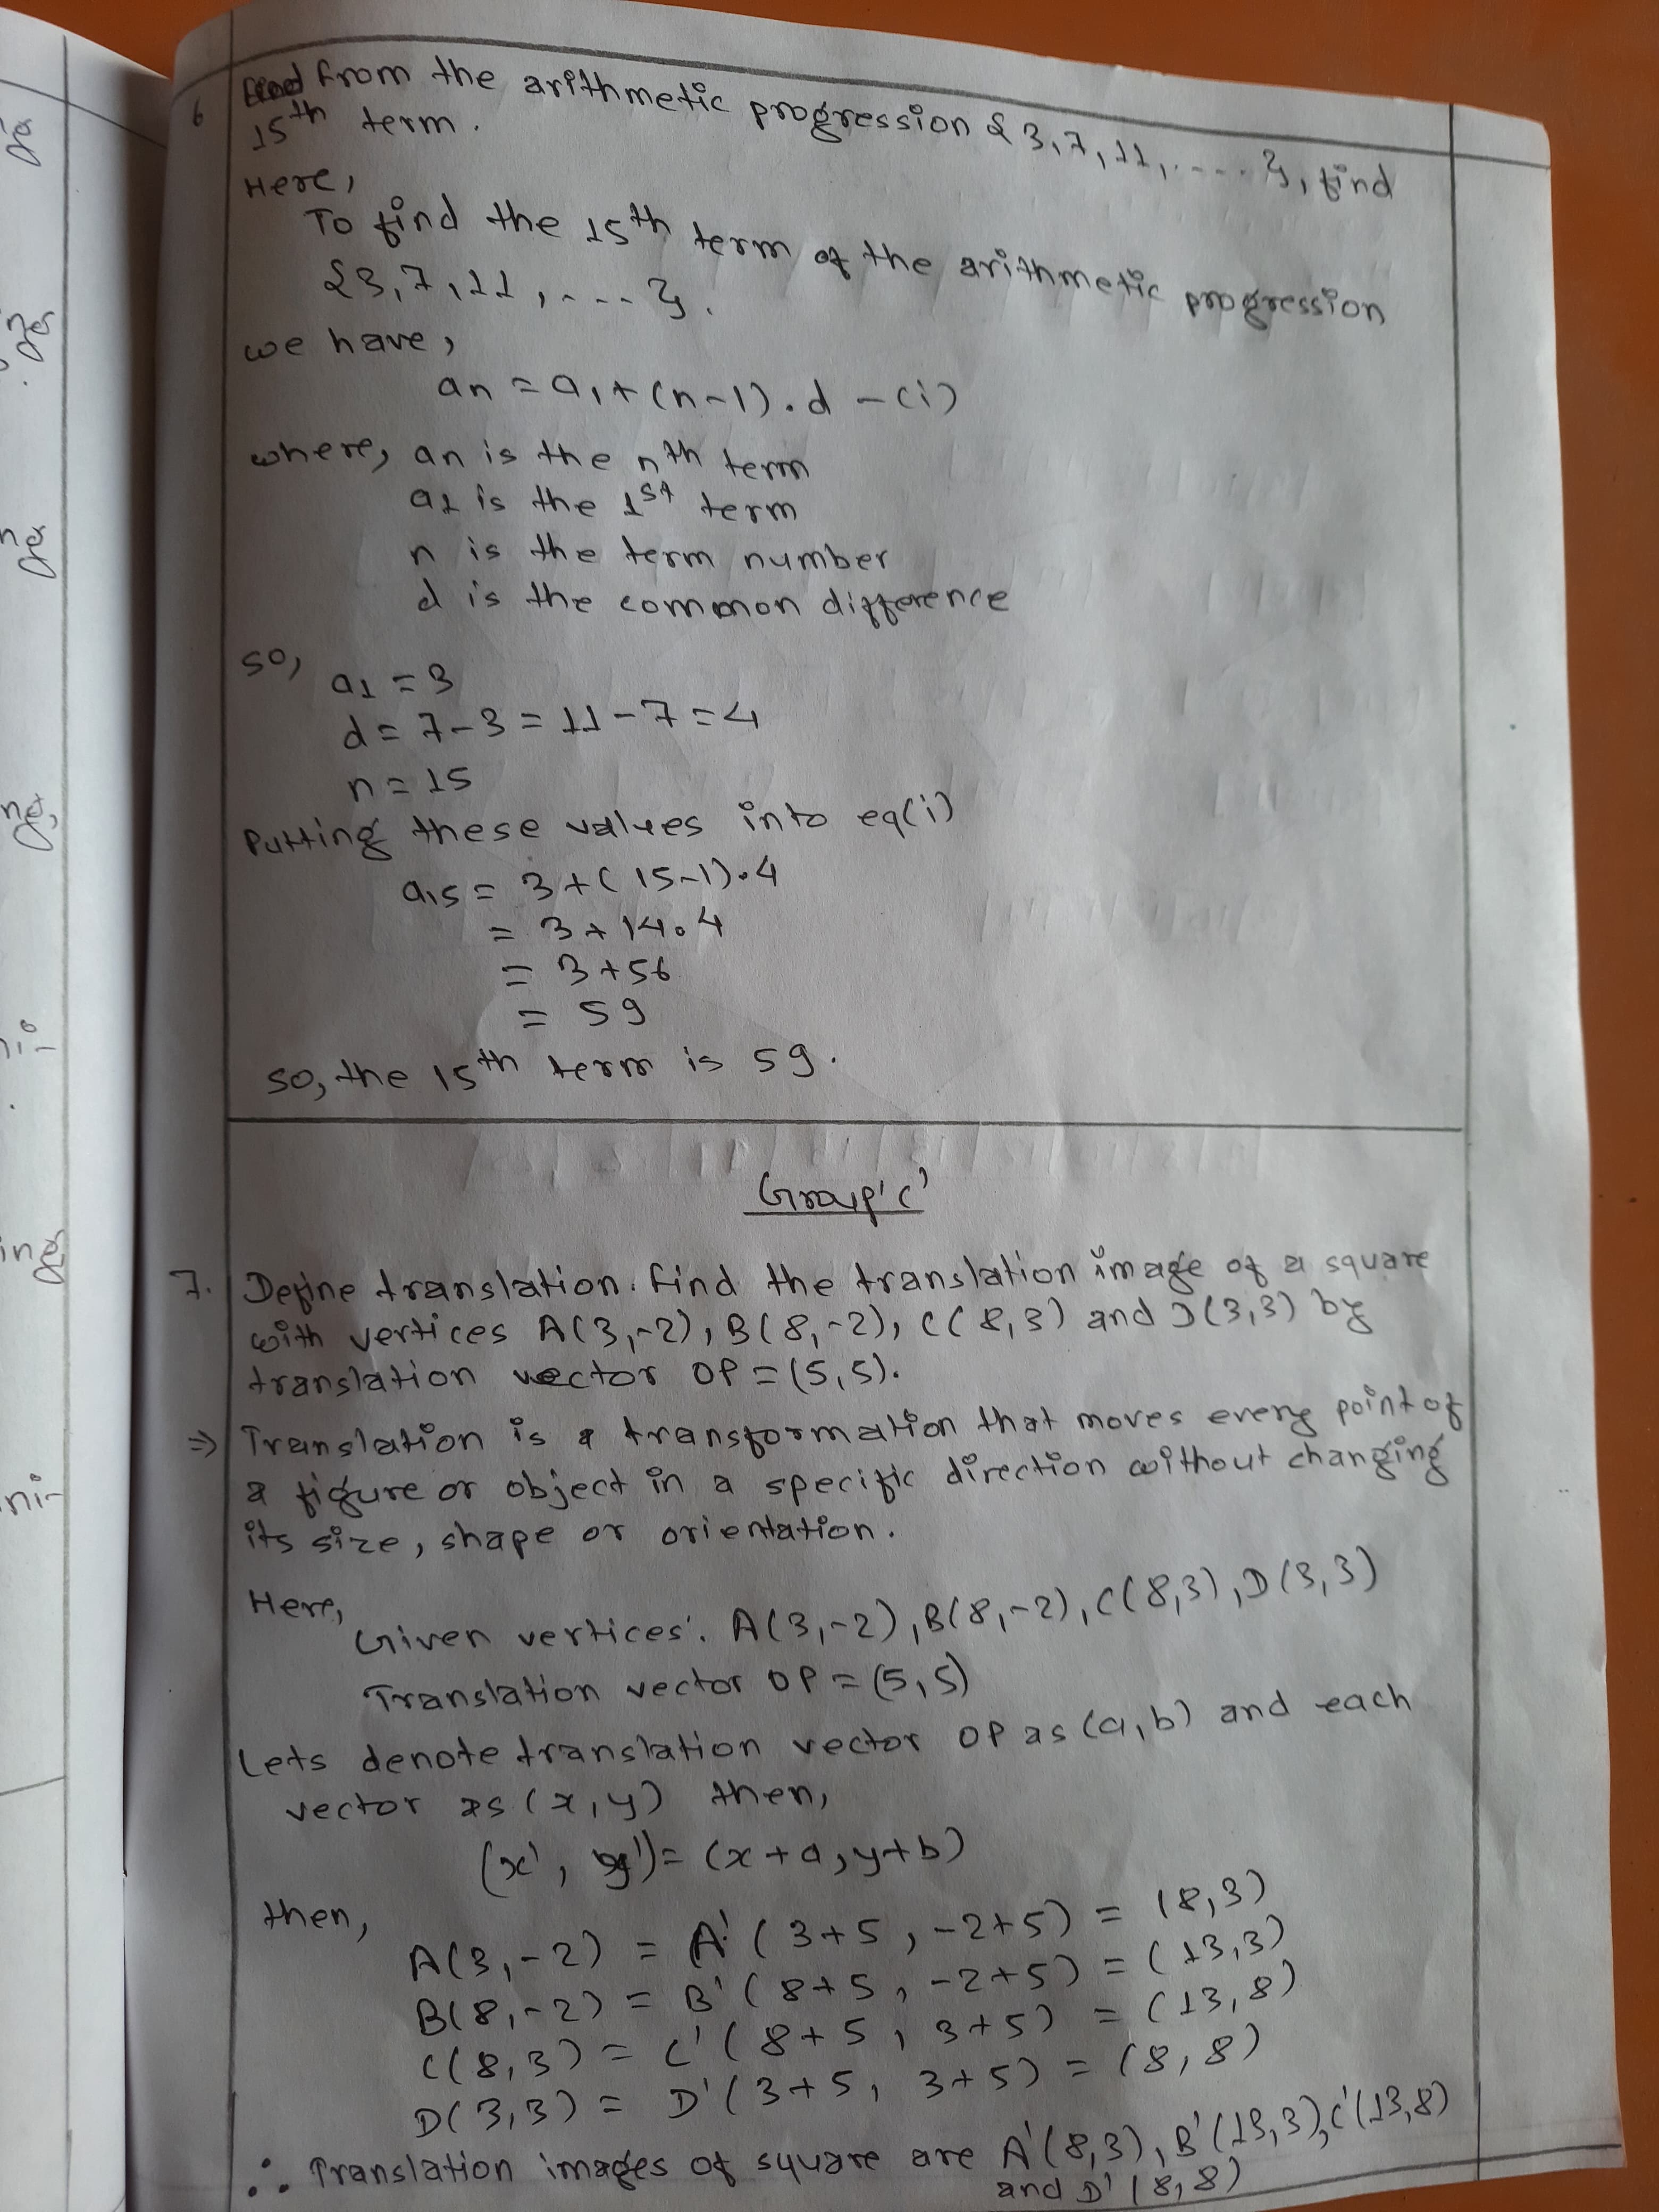 6 From the arithmetic progression {3, 7, 11, .... }, find
15th term.
Here,
To find the 15th term of the arithmetic progression
{3, 7, 11, .... }.
we have,
an = a1 + (n-1).d - (i)
where, an is the nth term
a1 is the 1st term
n is the term number
d is the common difference
so,
a1 = 3
d = 7-3 = 11-7 = 4
n = 15
Putting these values into eq(i)
a15 = 3+(15-1).4
= 3+14.4
= 3+56
= 59
so, the 15th term is 59.
Group 'C'
7. Define translation. Find the translation image of a square
with vertices A(3,-2), B(8,-2), C(8,3) and D(3,3) by
translation vector OP = (5,5).
⇒ Translation is a transformation that moves every point of
a figure or object in a specific direction without changing
its size, shape or orientation.
Here,
Given vertices: A(3,-2), B(8,-2), C(8,3), D(3,3)
Translation vector OP = (5,5)
Lets denote translation vector OP as (a,b) and each
vector as (x,y) then,
(x', y') = (x+a, y+b)
then,
A(3,-2) = A'(3+5, -2+5) = (8,3)
B(8,-2) = B'(8+5, -2+5) = (13,3)
C(8,3) = C'(8+5, 3+5) = (13,8)
D(3,3) = D'(3+5, 3+5) = (8,8)
∴ Translation images of square are A'(8,3), B'(13,3), C'(13,8)
and D'(8,8)